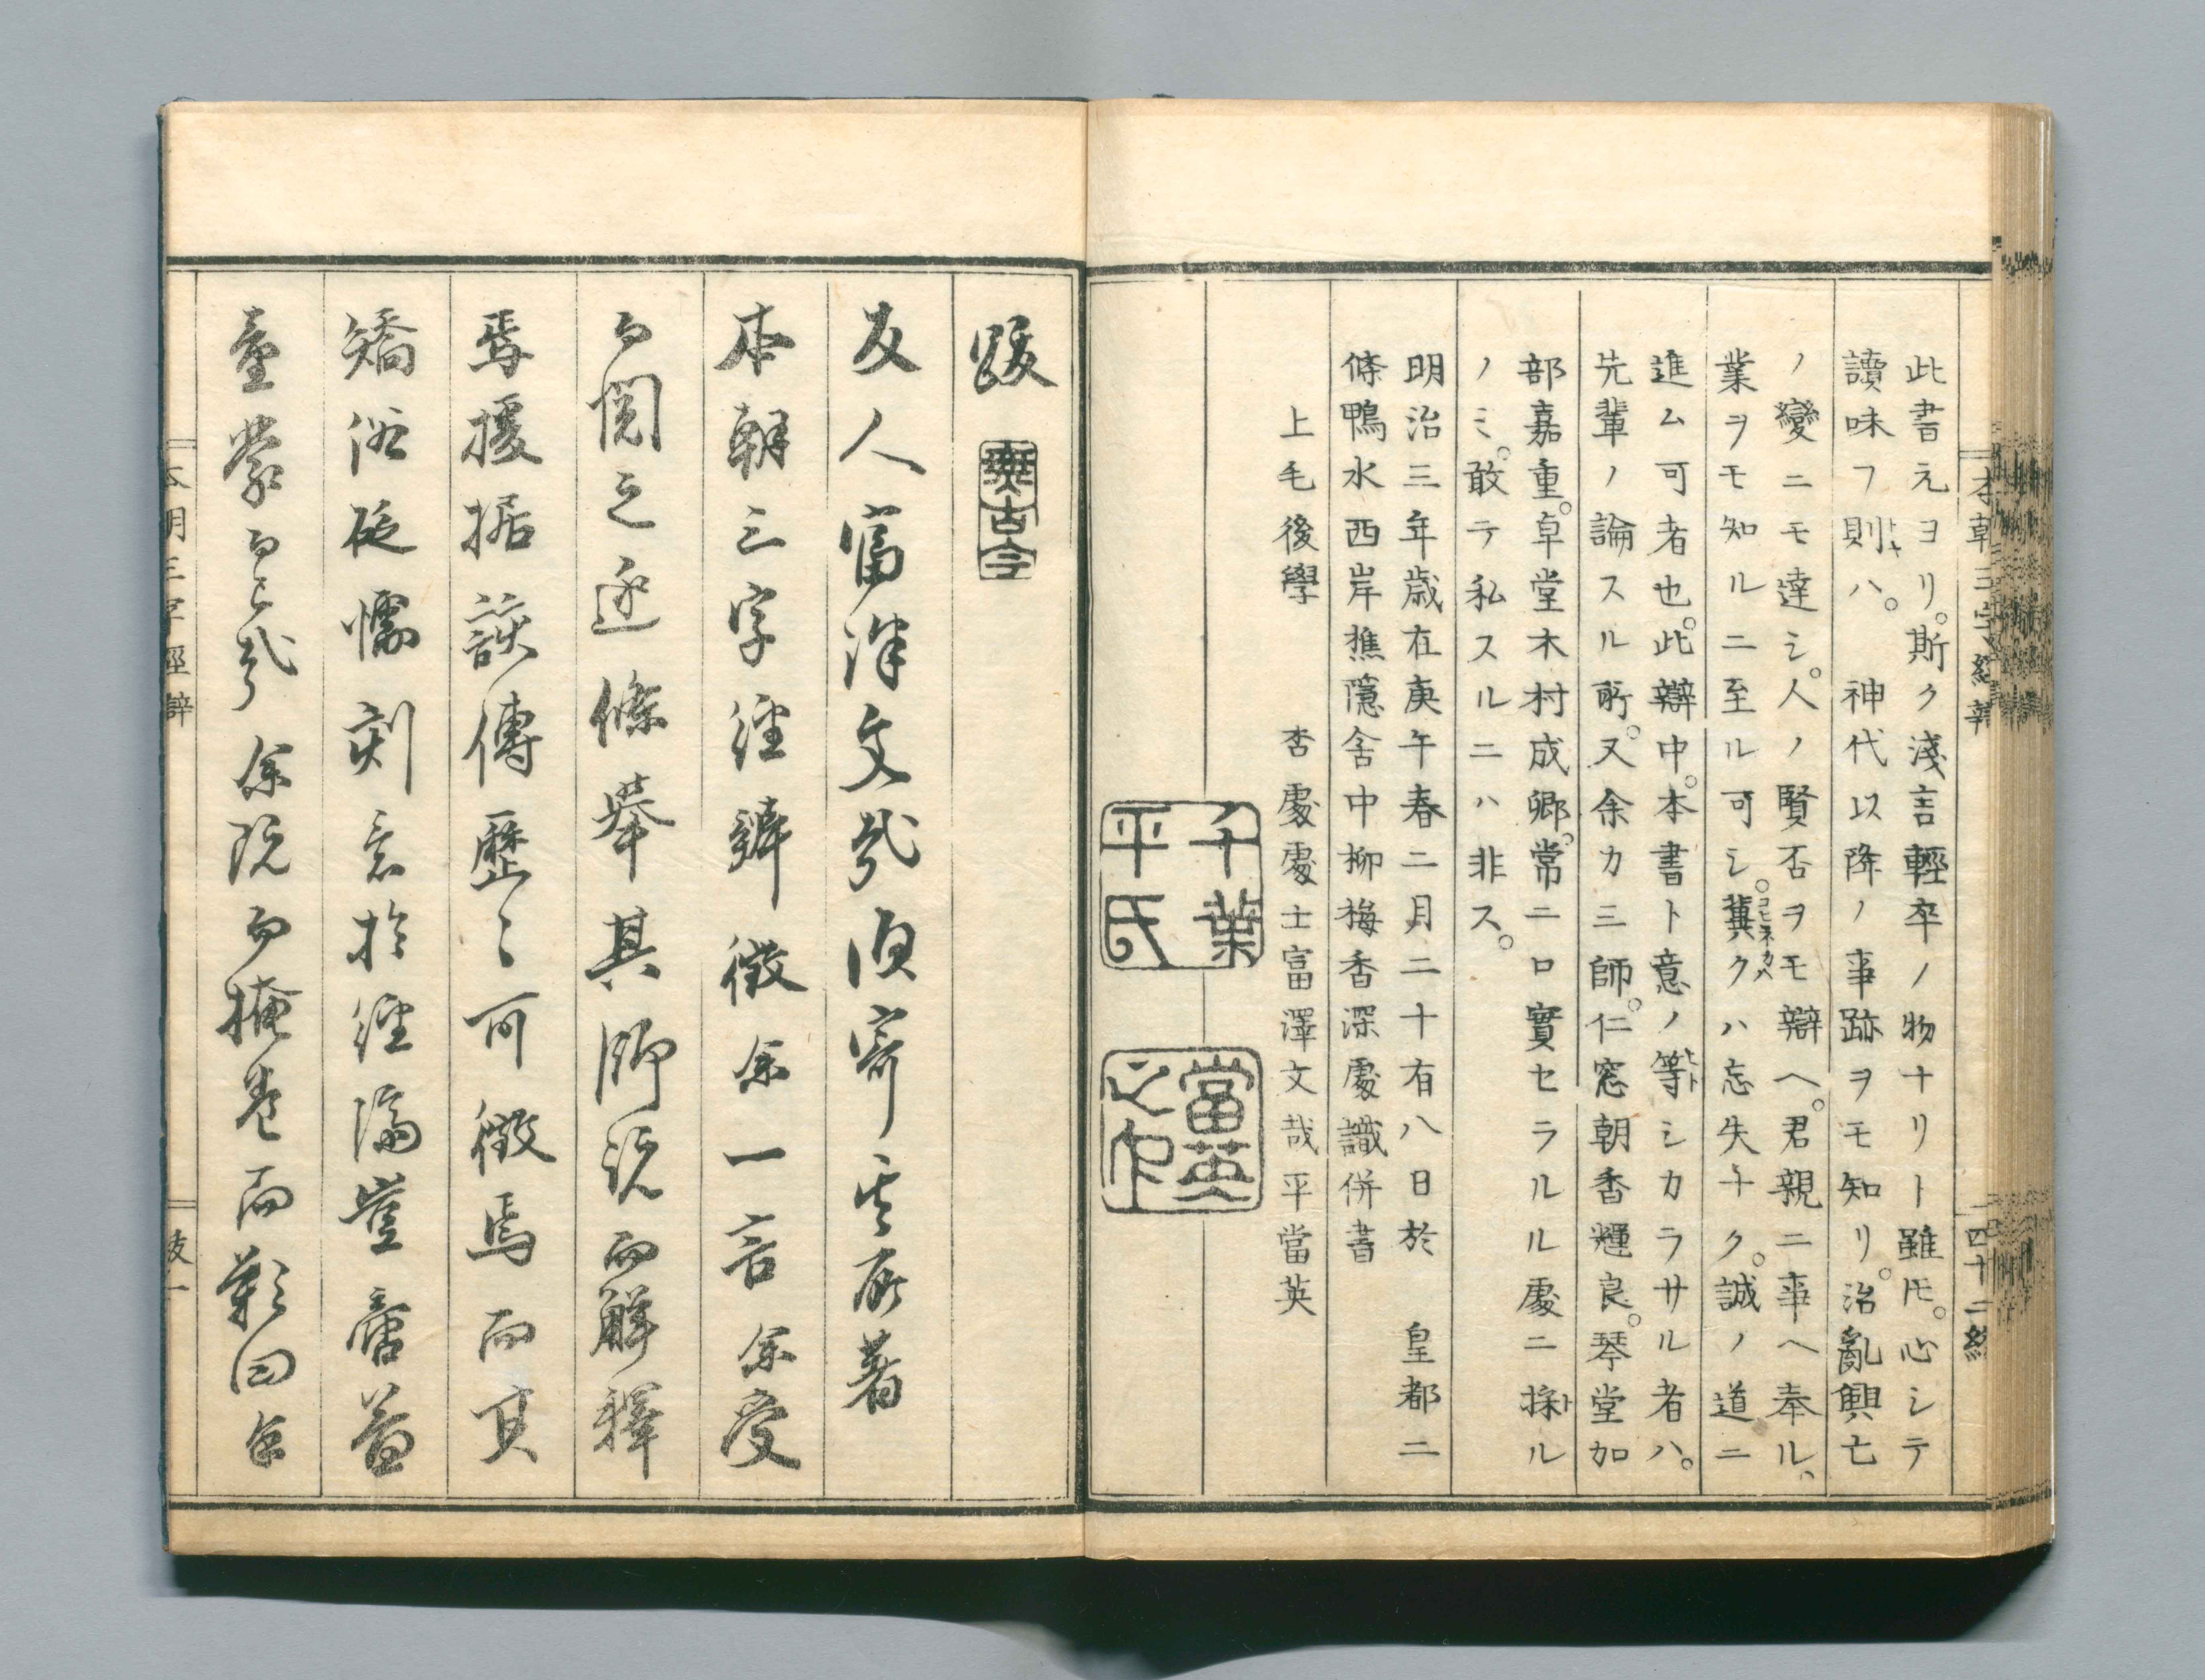 此書元ヨリ。斯ク淺言輕卒ノ物ナリト雖𪜈。心シテ
讀味フ則ハ。神代以降ノ事跡ヲモ知リ。治亂興亡
ノ變ニモ達シ。人ノ賢否ヲモ辯ヘ。君親ニ事ヘ奉ル。
業ヲモ知ルニ至ル可シ。冀クハ忘失ナク。誠ノ道ニ
進ム可者也。此辯中。本書ト意ノ等シカラサル者ハ。
先輩ノ論スル所。又余カ三師。仁窓朝香種良。琴堂加
部嘉重。卓堂木村成卿。常ニロ實セラルル處ニ採ル
ノミ。敢テ私スルニハ非ス。
明治三年歳在庚午春二月二十有八日於 皇都二
條鴨水西岸樵隱舍中柳梅香深處識併書
上毛後學 杏處處士富澤文哉平當英
千葉平氏
當英之印
跋
友人富澤文哉須寄其所著
本朝三字經辨徵余一言余受
而閲之逐條舉其師說而解釋
焉援据談傳歷〻可徵焉而其
矯俗砭懦刻意於經濟豈啻益
童蒙而已哉余既而掩卷而歎曰
跋一